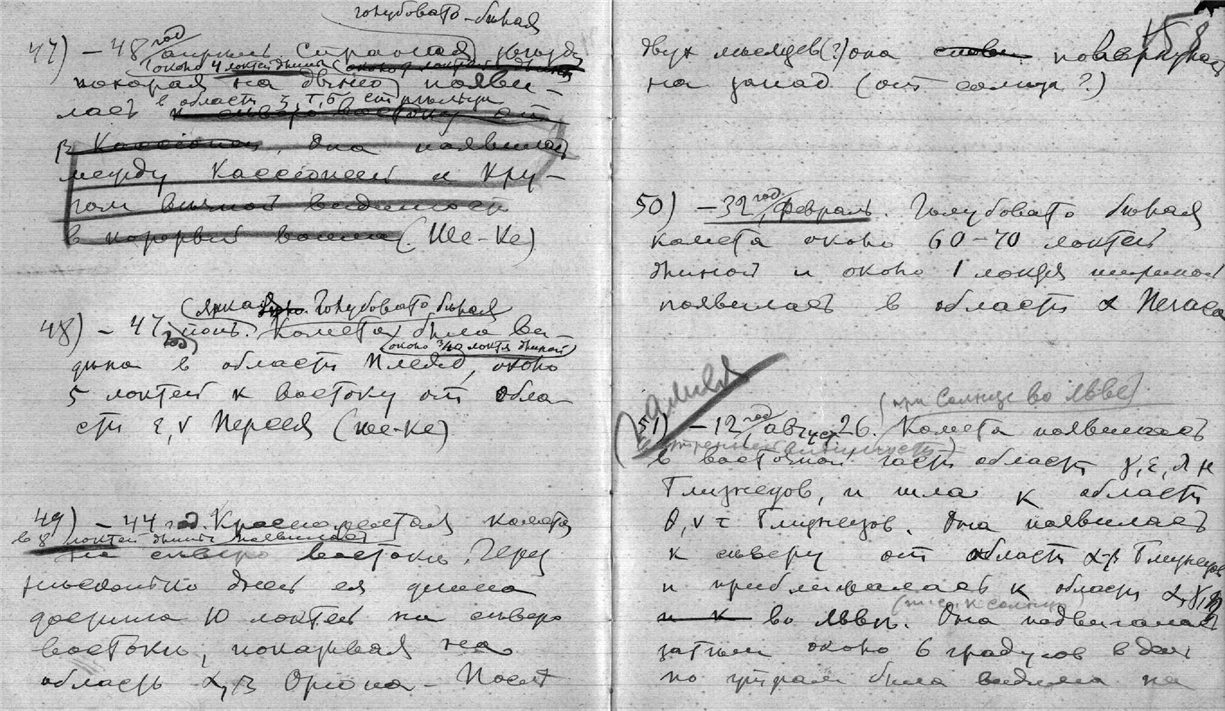 голубовато-бѣлая
47) – 48 год апрѣль. Странная звѣзда
(около 4 локтей длины)
которая на длинѣ появи-
въ области ζ, τ, δ
лась къ сѣверо востоку отъ
β Кассіопеи, она появилась
между Кассіопеей и Кру-
гомъ вѣчной видимости
(Ше-Ке)
(яркая голубовато бѣлая
48) – 47 год іюнь. Комета была ви-
(около 3/10 локтя длиной)
дима в области Плеяд, около
5 локтей к востоку от обла-
сти ε, ν Персея (ше-ке)
49) – 44 год. Красно желтая комета
въ 8 локтей длины появилась
на сѣверо востокѣ. Через
нѣсколько дней ея длина
достигла 10 локтей на сѣверо
востокѣ, показывая на
область α, β Ориона – Послѣ
158
двух мѣсяцев (?) она повернула
на запад (от солнца ?)
50) – 32 год, февраль. Голубовато бѣлая
комета около 60–70 локтей
длиной и около 1 локтя шириной
появилась в области α Пегаса
Галлея
(при Солнце во Львѣ)
51) – 12 год август 26. Комета появилась
(в утренней видимости)
в восточной части области γ, ε, λ и
Близнецов, и шла к области
θ, ν τ Близнецов. Она появилась
к сѣверу от области α-β Близнецов
и приближалась к области α, γ, η
(т.е. к солнцу)
и к во Львѣ. Она подвигалась
затѣм около 6 градусов в день
по утрам была видима на